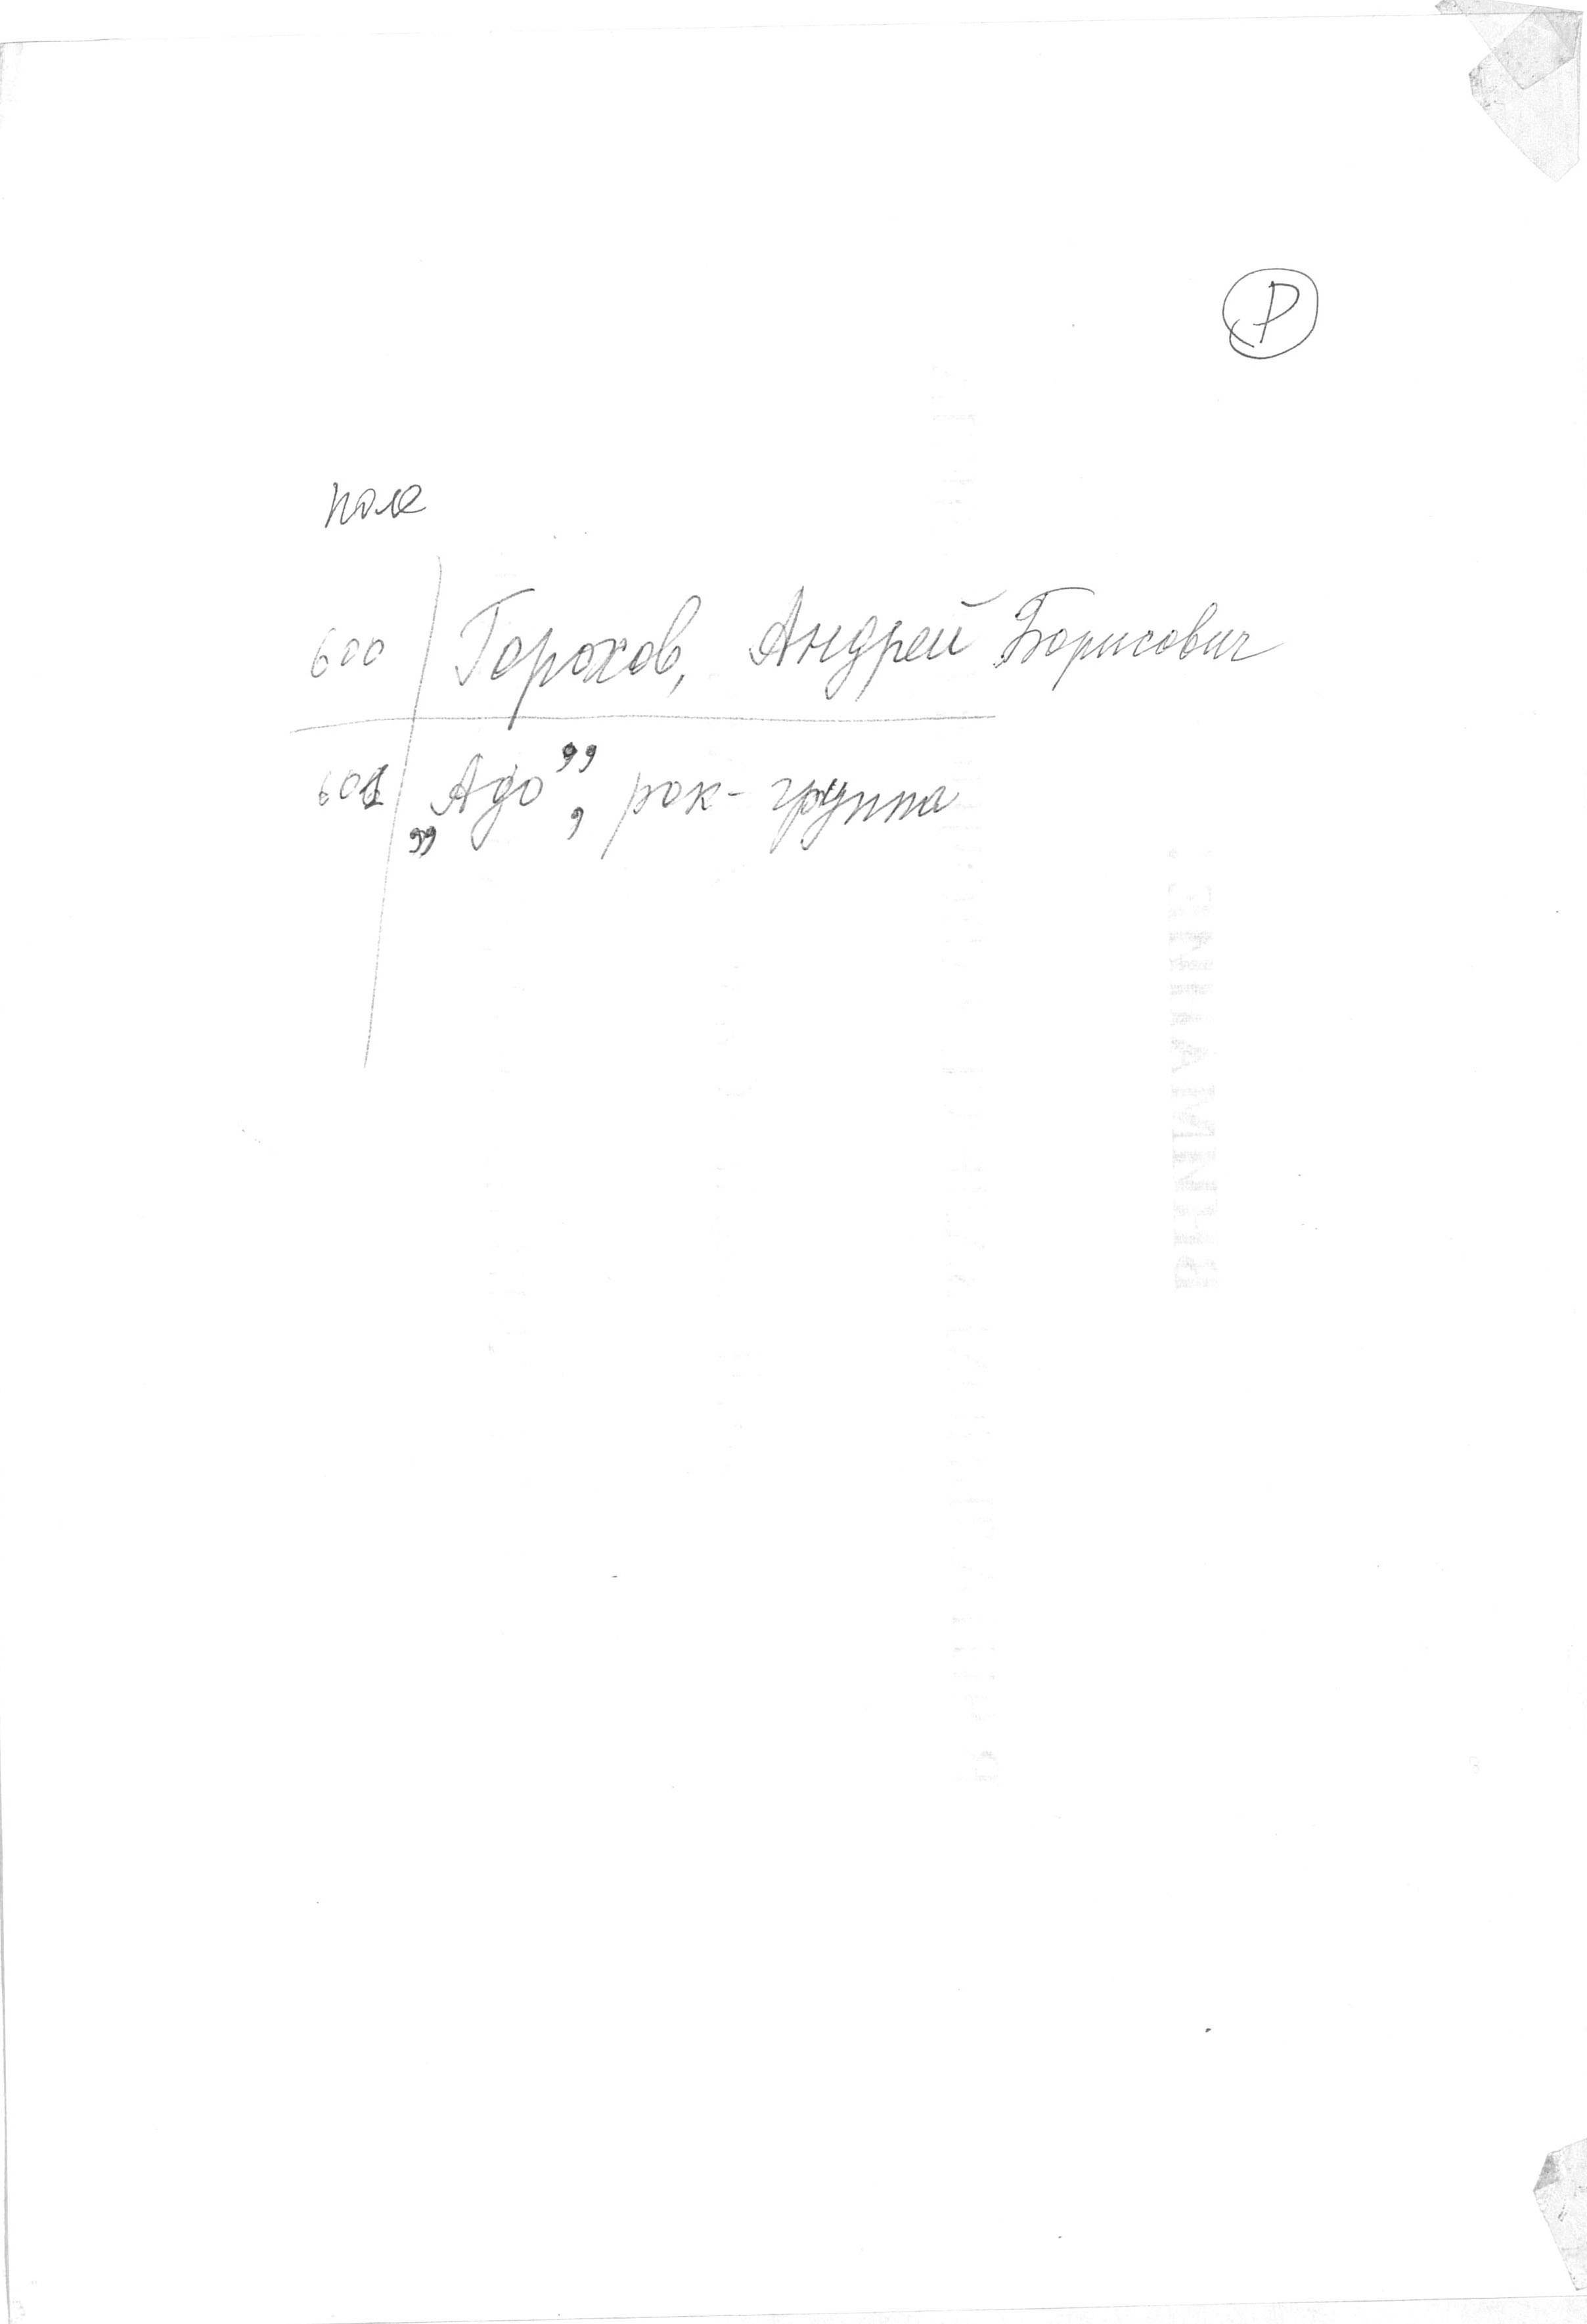 Р
поле
600 Горохов, Андрей Борисович
601 „Адо”, рок-группа
ВНИМАНИЕ